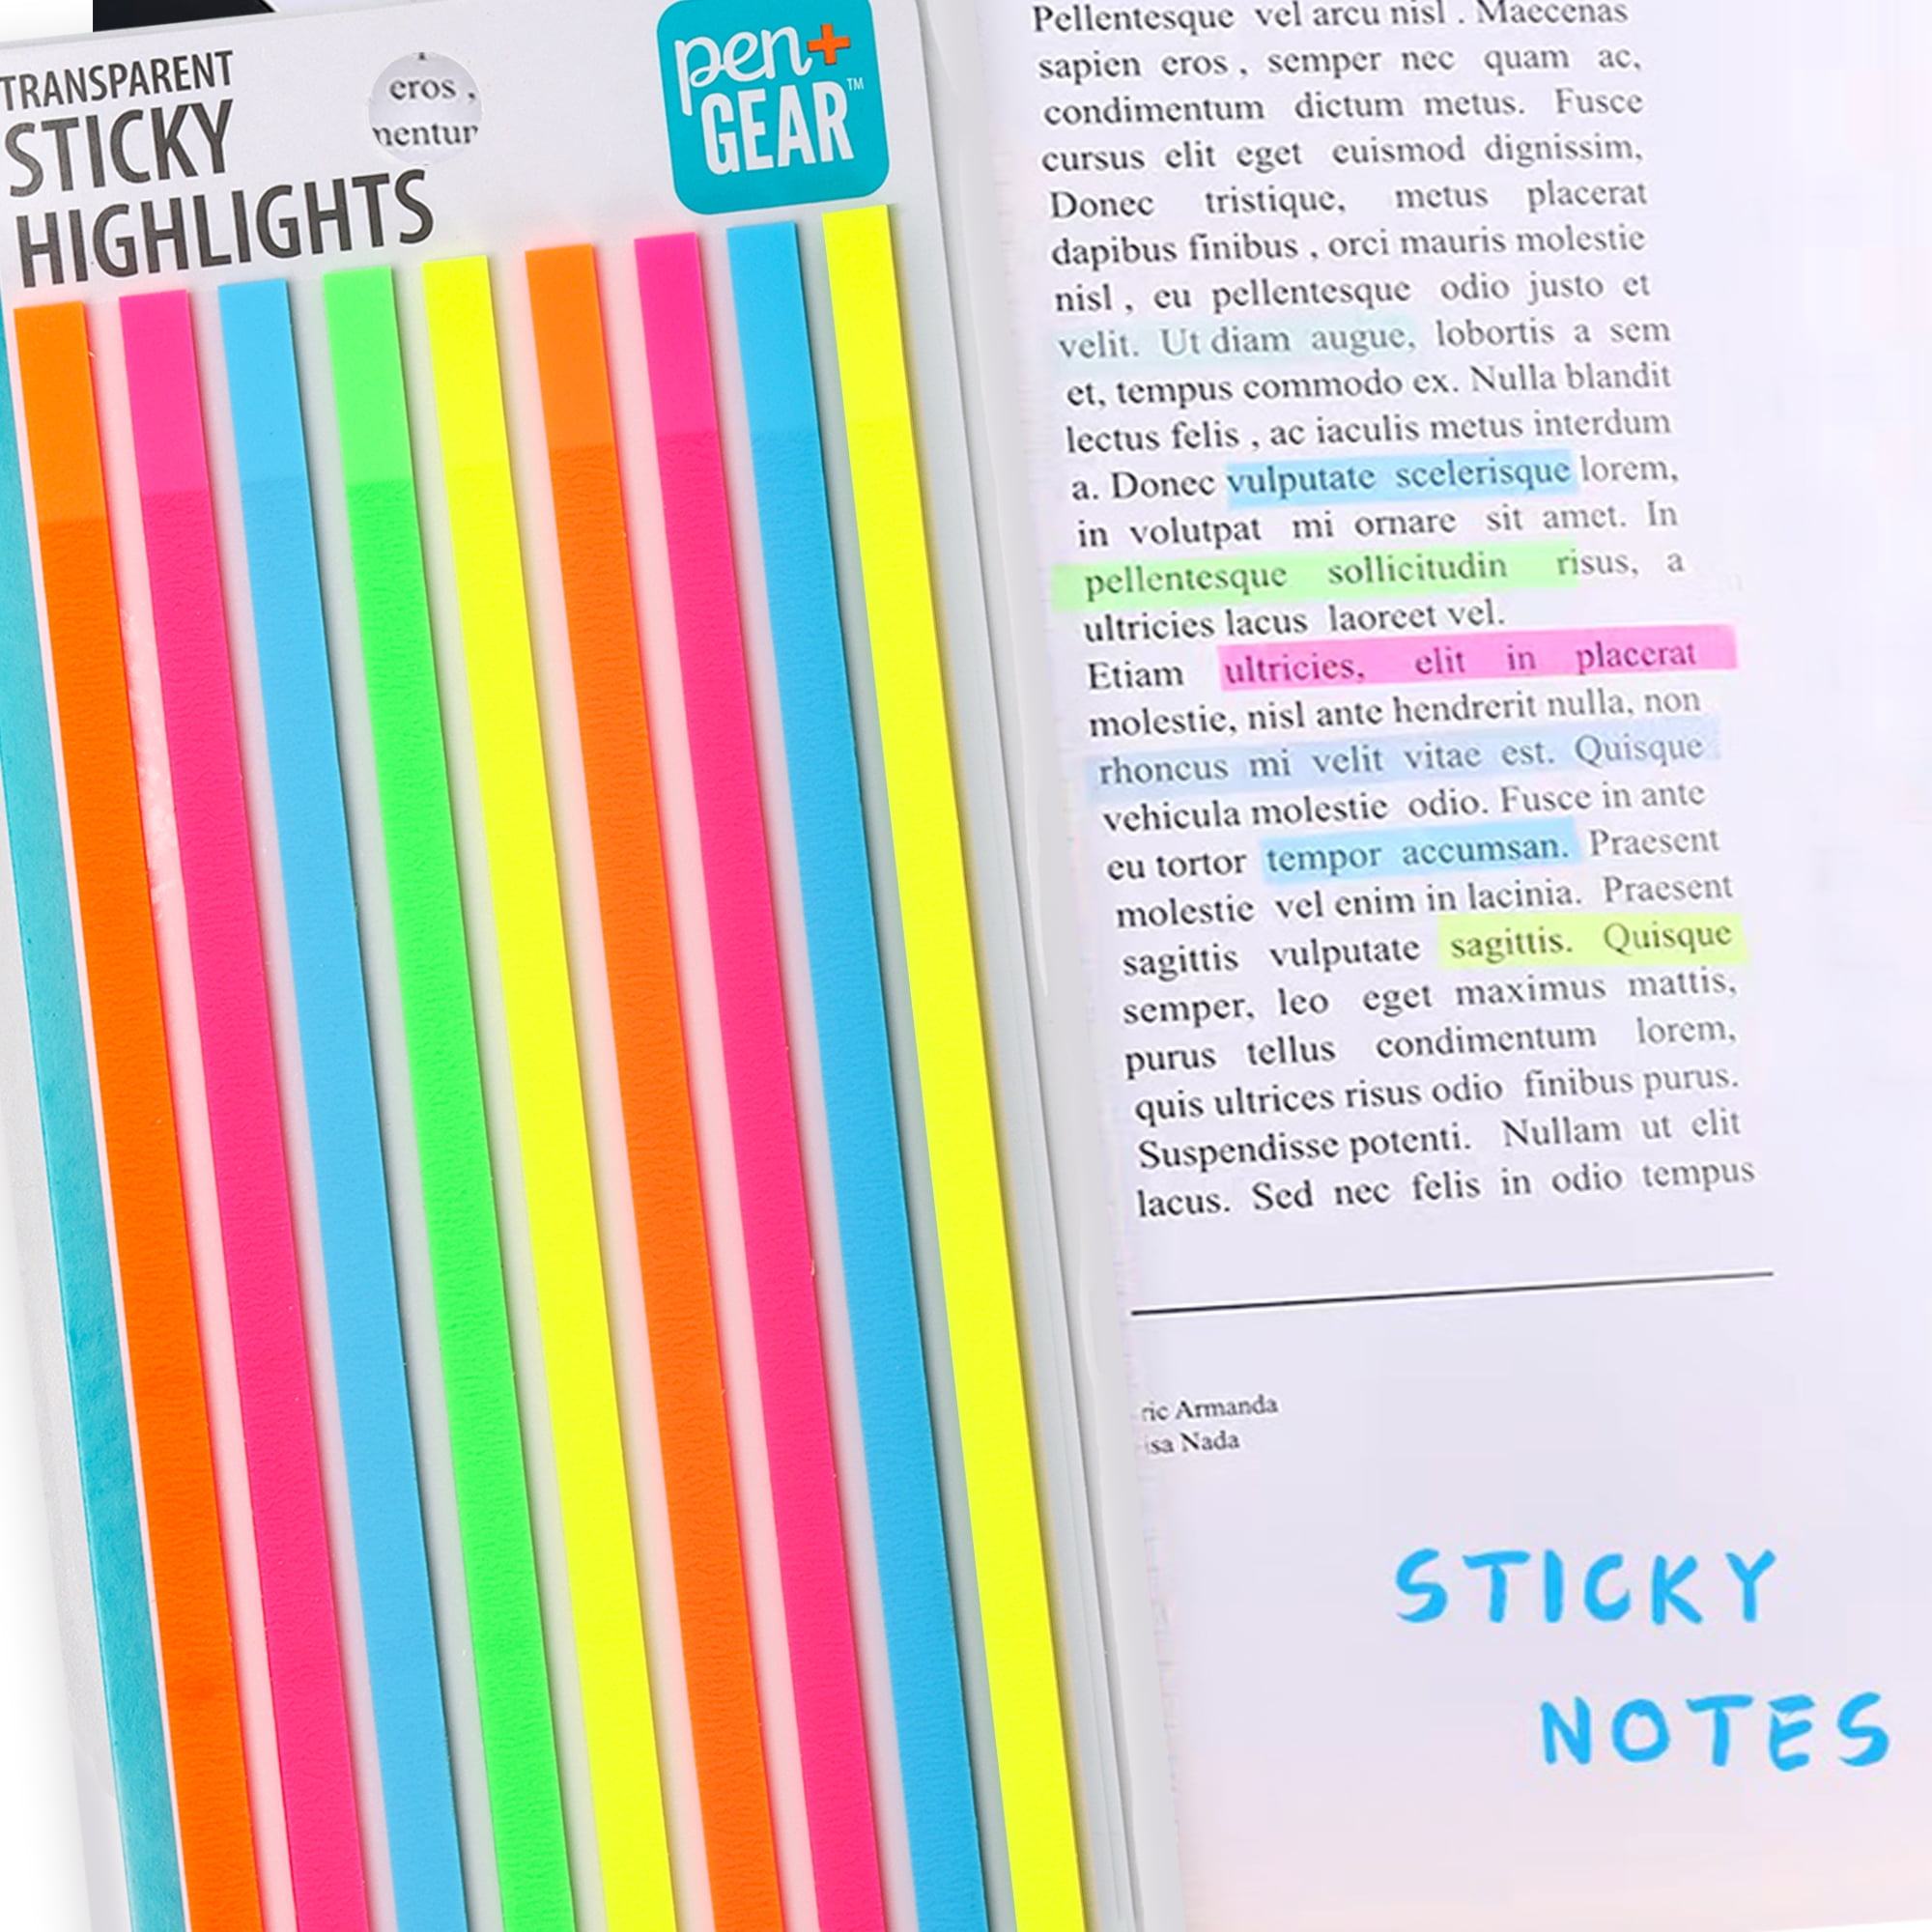 TRANSPARENT
STICKY
HIGHLIGHTS
eros ,
nentur
pen+
GEAR™
Pellentesque vel arcu nisl . Maecenas
sapien eros , semper nec quam ac,
condimentum dictum metus. Fusce
cursus elit eget euismod dignissim,
Donec tristique, metus placerat
dapibus finibus , orci mauris molestie
nisl , eu pellentesque odio justo et
velit. Ut diam augue, lobortis a sem
et, tempus commodo ex. Nulla blandit
lectus felis , ac iaculis metus interdum
a. Donec vulputate scelerisque lorem,
in volutpat mi ornare sit amet. In
pellentesque sollicitudin risus, a
ultricies lacus laoreet vel.
Etiam ultricies, elit in placerat
molestie, nisl ante hendrerit nulla, non
rhoncus mi velit vitae est. Quisque
vehicula molestie odio. Fusce in ante
eu tortor tempor accumsan. Praesent
molestie vel enim in lacinia. Praesent
sagittis vulputate sagittis. Quisque
semper, leo eget maximus mattis,
purus tellus condimentum lorem,
quis ultrices risus odio finibus purus.
Suspendisse potenti. Nullam ut elit
lacus. Sed nec felis in odio tempus
ric Armanda
isa Nada
STICKY
NOTES